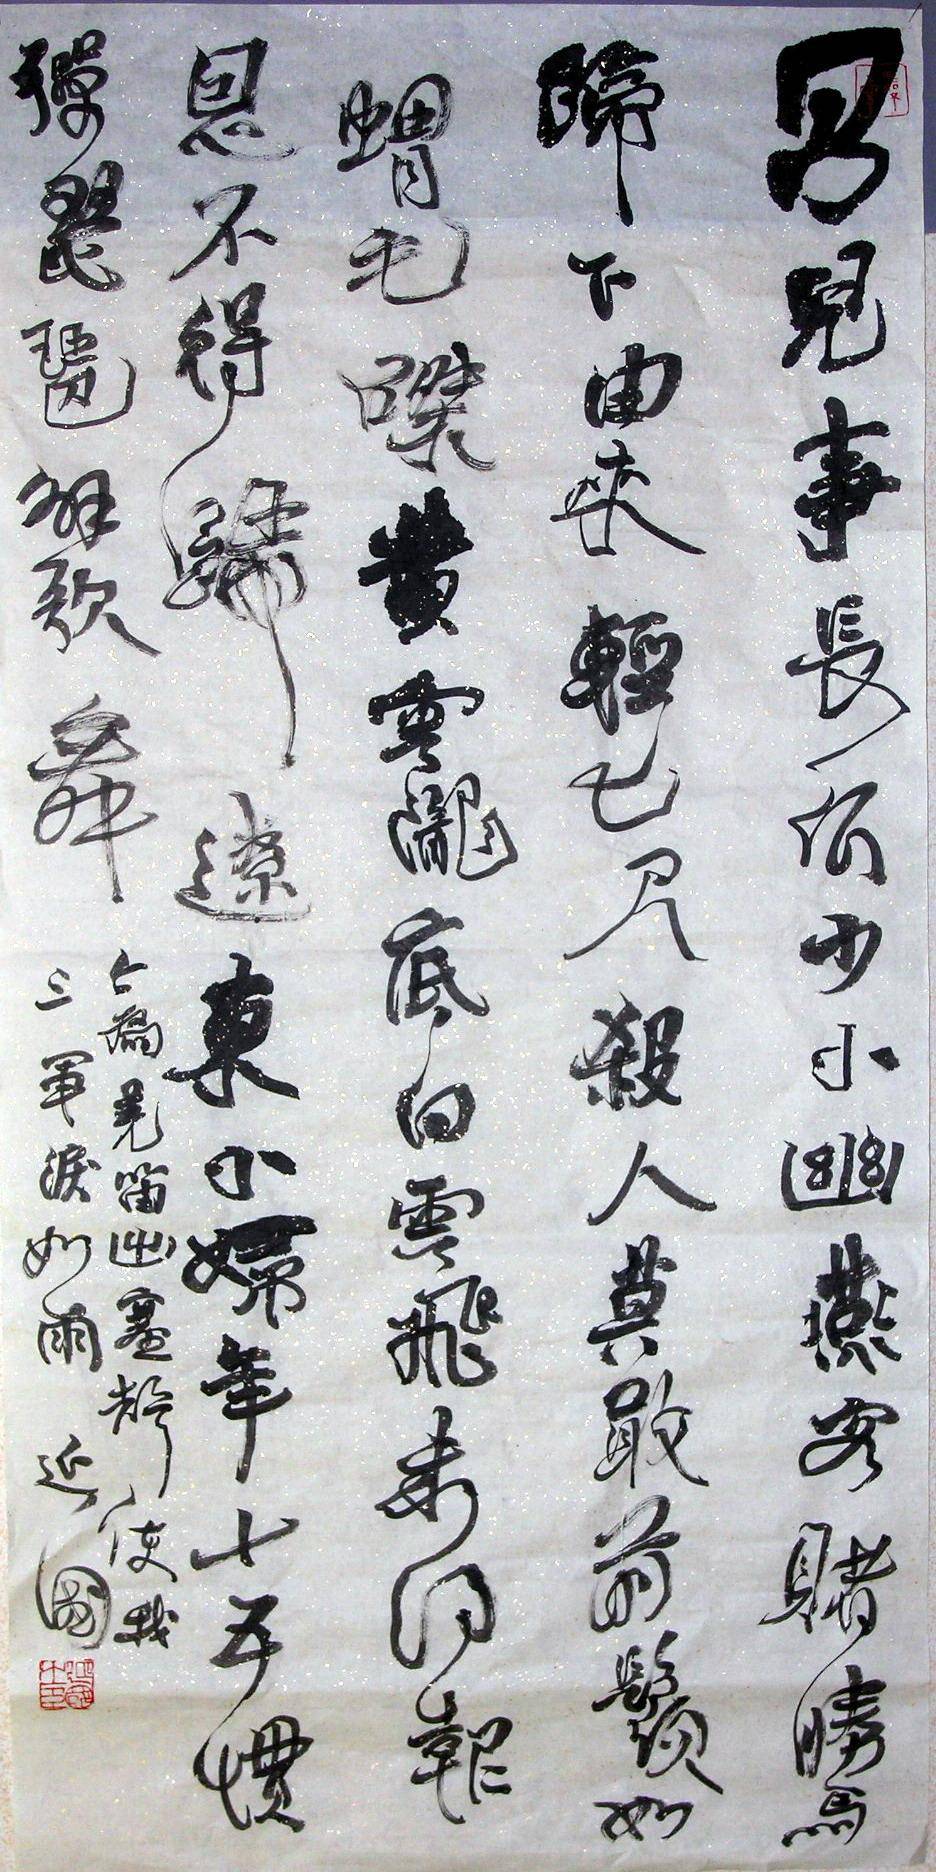 男兒事長征少小幽燕客賭勝馬
蹄下由來輕七尺殺人莫敢前鬚如
蝟毛磔黃雲隴底白雲飛未得報
恩不得歸遼東小婦年十五慣
彈琵琶解歌舞
今為羌笛出塞聲使我
三軍淚如雨 近國